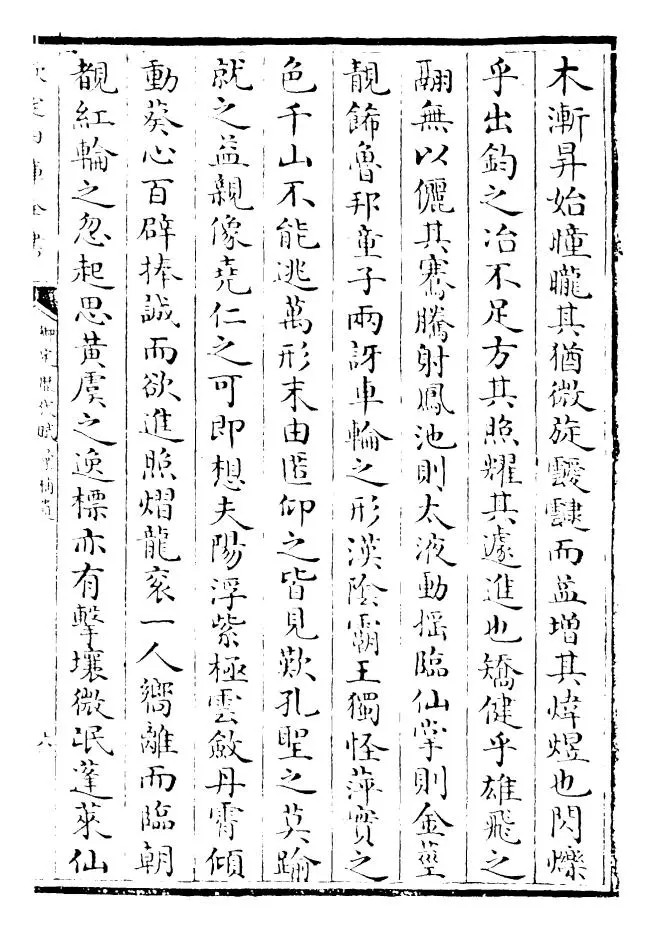 木漸昇始曈曨其猶微旋靉靆而益增其煒煜也閃爍
乎出鈞之冶不足方其照耀其遽進也矯健乎雄飛之
翮無以儷其騫騰射鳳池則太液動揺臨仙掌則金莖
靚飾魯邦童子兩訝車輪之形漢陰霸王獨怪萍實之
色千山不能逃萬形末由匿仰之皆見歎孔聖之莫踰
就之益親像堯仁之可即想夫陽浮紫極雲斂丹霄傾
動葵心百辟捧誠而欲進照熠龍衮一人嚮離而臨朝
覩紅輪之忽起思黄虞之逸標亦有擊壤微氓蓬萊仙
欽定四庫全書
御定歴代賦彙補遺
六